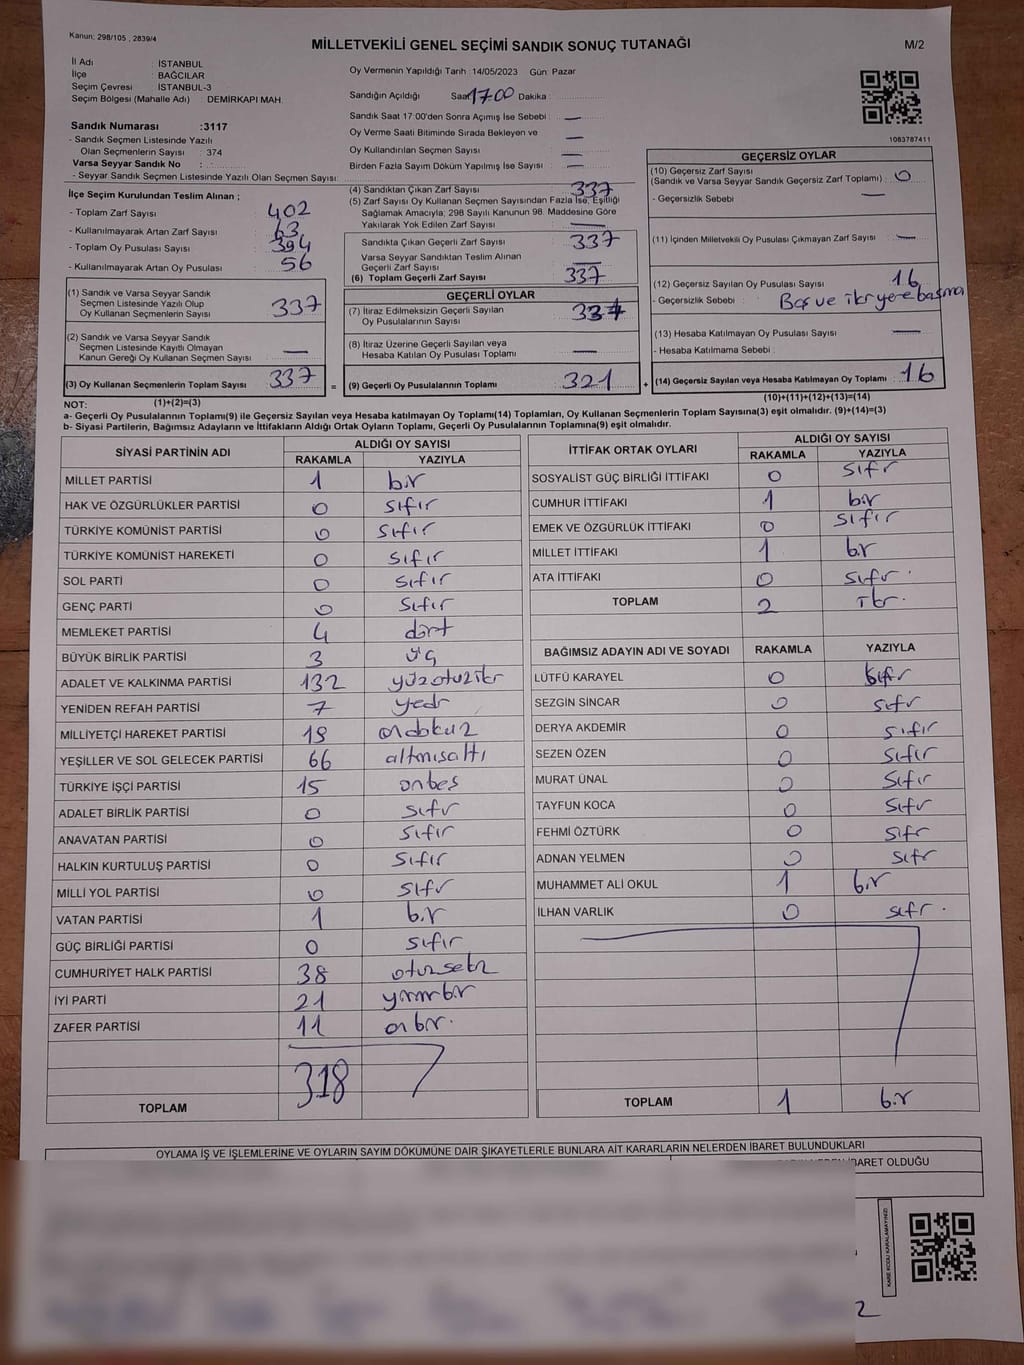 Kanun: 298/105 ; 2839/4
MİLLETVEKİLİ GENEL SEÇİMİ SANDIK SONUÇ TUTANAĞI
M/2
İl Adı : İSTANBUL
İlçe : BAĞCILAR
Seçim Çevresi : İSTANBUL-3
Seçim Bölgesi (Mahalle Adı) : DEMİRKAPI MAH.
Oy Vermenin Yapıldığı Tarih :14/05/2023 Gün: Pazar
Sandığın Açıldığı Saat 17:00 Dakika :
Sandık Saat 17:00'den Sonra Açımış İse Sebebi : —
Oy Verme Saati Bitiminde Sırada Bekleyen ve —
Oy Kullandırılan Seçmen Sayısı : —
Birden Fazla Sayım Döküm Yapılmış İse Sayısı : —
1083787411
Sandık Numarası :3117
- Sandık Seçmen Listesinde Yazılı
Olan Seçmenlerin Sayısı : 374
Varsa Seyyar Sandık No :
- Seyyar Sandık Seçmen Listesinde Yazılı Olan Seçmen Sayısı:
İlçe Seçim Kurulundan Teslim Alınan ;
- Toplam Zarf Sayısı : 402
- Kullanılmayarak Artan Zarf Sayısı : 63
- Toplam Oy Pusulası Sayısı : 394
- Kullanılmayarak Artan Oy Pusulası : 56
(1) Sandık ve Varsa Seyyar Sandık
Seçmen Listesinde Yazılı Olup
Oy Kullanan Seçmenlerin Sayısı : 337
(2) Sandık ve Varsa Seyyar Sandık
Seçmen Listesinde Kayıtlı Olmayan
Kanun Gereği Oy Kullanan Seçmen Sayısı : —
(3) Oy Kullanan Seçmenlerin Toplam Sayısı : 337 =
(4) Sandıktan Çıkan Zarf Sayısı : 337
(5) Zarf Sayısı Oy Kullanan Seçmen Sayısından Fazla İse, Eşitliği
Sağlamak Amacıyla; 298 Sayılı Kanunun 98. Maddesine Göre
Yakılarak Yok Edilen Zarf Sayısı : —
Sandıkta Çıkan Geçerli Zarf Sayısı : 337
Varsa Seyyar Sandıktan Teslim Alınan
Geçerli Zarf Sayısı : —
(6) Toplam Geçerli Zarf Sayısı : 337
GEÇERLİ OYLAR
(7) İtiraz Edilmeksizin Geçerli Sayılan
Oy Pusulalarının Sayısı :
(8) İtiraz Üzerine Geçerli Sayılan veya
Hesaba Katılan Oy Pusulası Toplamı : —
(9) Geçerli Oy Pusulalarının Toplamı : 321 +
GEÇERSİZ OYLAR
(10) Geçersiz Zarf Sayısı
(Sandık ve Varsa Seyyar Sandık Geçersiz Zarf Toplamı) : 0
- Geçersizlik Sebebi : —
(11) İçinden Milletvekili Oy Pusulası Çıkmayan Zarf Sayısı : —
(12) Geçersiz Sayılan Oy Pusulası Sayısı : 16
- Geçersizlik Sebebi : Boş ve iki yere basma
(13) Hesaba Katılmayan Oy Pusulası Sayısı : —
- Hesaba Katılmama Sebebi :
(14) Geçersiz Sayılan veya Hesaba Katılmayan Oy Toplamı : 16
NOT: (1)+(2)=(3)
(10)+(11)+(12)+(13)=(14)
a- Geçerli Oy Pusulalarının Toplamı(9) ile Geçersiz Sayılan veya Hesaba katılmayan Oy Toplamı(14) Toplamları, Oy Kullanan Seçmenlerin Toplam Sayısına(3) eşit olmalıdır. (9)+(14)=(3)
b- Siyasi Partilerin, Bağımsız Adayların ve İttifakların Aldığı Ortak Oyların Toplamı, Geçerli Oy Pusulalarının Toplamına(9) eşit olmalıdır.
SİYASİ PARTİNİN ADI ALDIĞI OY SAYISI
RAKAMLA YAZIYLA
MİLLET PARTİSİ 1 bir
HAK VE ÖZGÜRLÜKLER PARTİSİ 0 sıfır
TÜRKİYE KOMÜNİST PARTİSİ 0 sıfır
TÜRKİYE KOMÜNİST HAREKETİ 0 sıfır
SOL PARTİ 0 sıfır
GENÇ PARTİ 0 sıfır
MEMLEKET PARTİSİ 4 dört
BÜYÜK BİRLİK PARTİSİ 3 üç
ADALET VE KALKINMA PARTİSİ 132 yüzotuziki
YENİDEN REFAH PARTİSİ 7 yedi
MİLLİYETÇİ HAREKET PARTİSİ 19 ondokuz
YEŞİLLER VE SOL GELECEK PARTİSİ 66 altmışaltı
TÜRKİYE İŞÇİ PARTİSİ 15 onbeş
ADALET BİRLİK PARTİSİ 0 sıfır
ANAVATAN PARTİSİ 0 sıfır
HALKIN KURTULUŞ PARTİSİ 0 sıfır
MİLLİ YOL PARTİSİ 0 sıfır
VATAN PARTİSİ 1 bir
GÜÇ BİRLİĞİ PARTİSİ 0 sıfır
CUMHURİYET HALK PARTİSİ 38 otuzsekiz
İYİ PARTİ 21 yirmibir
ZAFER PARTİSİ 11 onbir.
TOPLAM 318
İTTİFAK ORTAK OYLARI ALDIĞI OY SAYISI
RAKAMLA YAZIYLA
SOSYALİST GÜÇ BİRLİĞİ İTTİFAKI 0 sıfır
CUMHUR İTTİFAKI 1 bir
EMEK VE ÖZGÜRLÜK İTTİFAKI 0 sıfır
MİLLET İTTİFAKI 1 bir
ATA İTTİFAKI 0 sıfır.
TOPLAM 2 iki.
BAĞIMSIZ ADAYIN ADI VE SOYADI RAKAMLA YAZIYLA
LÜTFÜ KARAYEL 0 sıfır
SEZGİN SİNCAR 0 sıfır
DERYA AKDEMİR 0 sıfır
SEZEN ÖZEN 0 sıfır
MURAT ÜNAL 0 sıfır
TAYFUN KOCA 0 sıfır
FEHMİ ÖZTÜRK 0 sıfır
ADNAN YELMEN 0 sıfır
MUHAMMET ALİ OKUL 1 bir
İLHAN VARLIK 0 sıfır.
TOPLAM 1 bir
OYLAMA İŞ VE İŞLEMLERİNE VE OYLARIN SAYIM DÖKÜMÜNE DAİR ŞİKAYETLERLE BUNLARA AİT KARARLARIN NELERDEN İBARET BULUNDUKLARI
İBARET OLDUĞU
KARE KODU KARALAMAYINIZ!
2